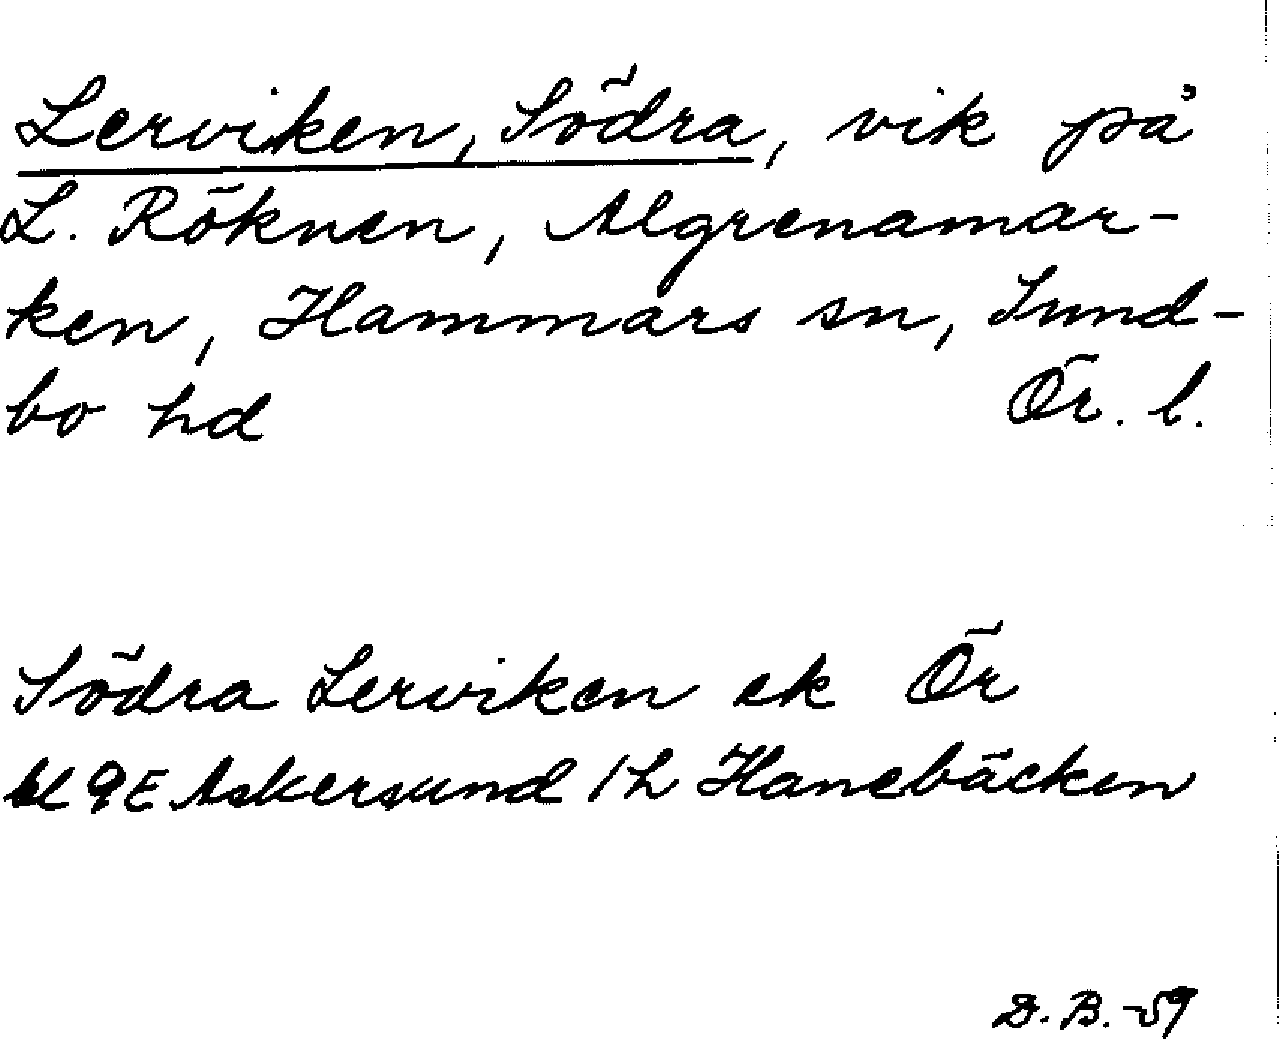 Lerviken, Södra, vik på
L. Röknen, Algrenamar-
ken, Hammars sn, Sund-
bo hd Ör. l.
Södra Lerviken ek Ör
bl 9E Askersund 1h Hanebäcken
D. B. -59